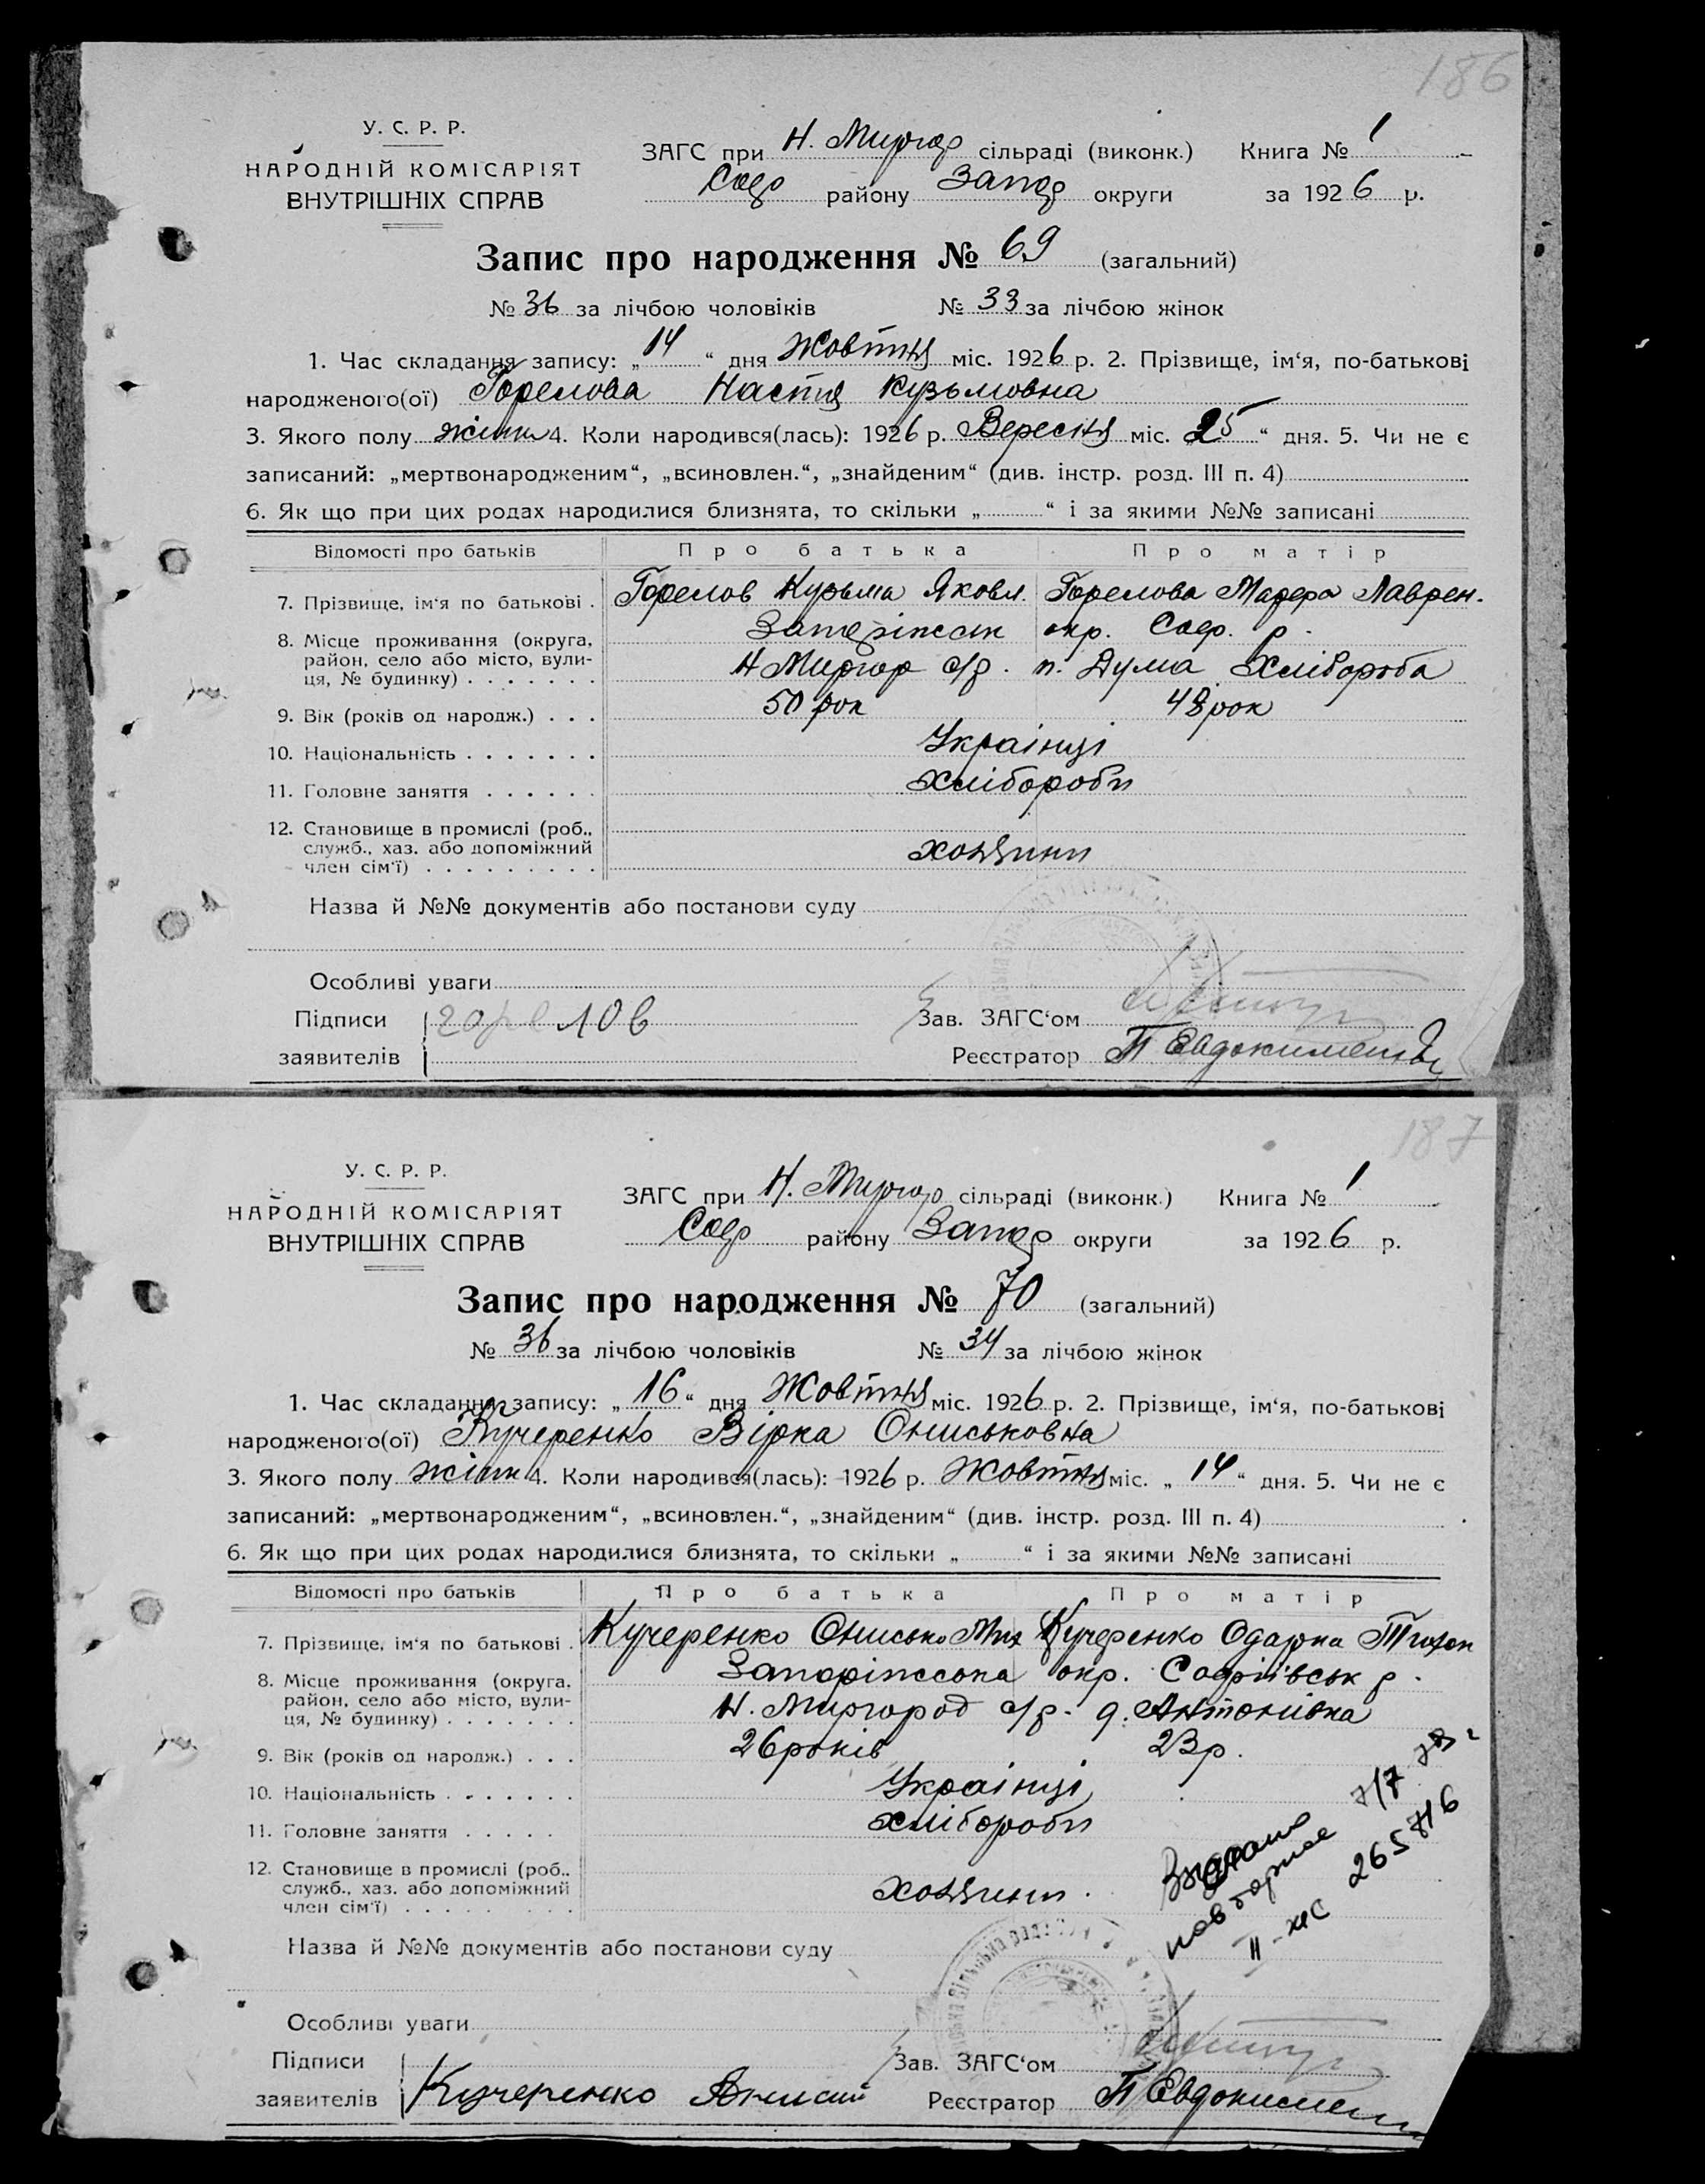 186
У. С. Р. Р.
НАРОДНІЙ КОМІСАРІЯТ
ВНУТРІШНІХ СПРАВ
ЗАГС при Н. Миргор сільраді (виконк.) Книга № 1
Соф району Запор округи за 1926 р.
Запис про народження № 69 (загальний)
№ 36 за лічбою чоловіків № 33 за лічбою жінок
1. Час складання запису: „14“ дня Жовтня міс. 1926 р. 2. Прізвище, ім‘я, по-батькові
народженого(ої) Горелова Настя Кузьмовна
3. Якого полу жіночЬ 4. Коли народився(лась): 1926 р. Вересня міс. 25“ дня. 5. Чи не є
записаний: „мертвонародженим“, „всиновлен.“, „знайденим“ (див. інстр. розд. III п. 4)
6. Як що при цих родах народилися близнята, то скільки „ “ і за якими №№ записані
Відомості про батьків Про батька Про матір
7. Прізвище, ім‘я по батькові . Горелов Кузьма Яковл. Горелова Марфа Лаврен.
8. Місце проживання (округа, Запоріжськ окр. Софр. р.
район, село або місто, вули- Н Миргор с/р. п. Дума Хлібороба
ця, № будинку) . . . . . . .
9. Вік (років од народж.) . . . 50 рок 48 рок
10. Національність . . . . . . . Українці
11. Головне заняття . . . . . . Хлібороби
12. Становище в промислі (роб.,
служб., хаз. або допоміжний хозяини
член сім‘ї) . . . . . . . . .
Назва й №№ документів або постанови суду
Особливі уваги
Підписи горелов Зав. ЗАГС‘ом
заявителів Реєстратор П Евдокименко
187
У. С. Р. Р.
НАРОДНІЙ КОМІСАРІЯТ
ВНУТРІШНІХ СПРАВ
ЗАГС при Н. Миргор сільраді (виконк.) Книга № 1
Соф району Запор округи за 1926 р.
Запис про народження № 70 (загальний)
№ 36 за лічбою чоловіків № 34 за лічбою жінок
1. Час складання запису: „16“ дня Жовтня міс. 1926 р. 2. Прізвище, ім‘я, по-батькові
народженого(ої) Кучеренко Вірка Ониськовна
3. Якого полу жіночЬ 4. Коли народився(лась): 1926 р. Жовтня міс. „14“ дня. 5. Чи не є
записаний: „мертвонародженим“, „всиновлен.“, „знайденим“ (див. інстр. розд. III п. 4)
6. Як що при цих родах народилися близнята, то скільки „ “ і за якими №№ записані
Відомості про батьків Про батька Про матір
7. Прізвище, ім‘я по батькові . Кучеренко Онисько Мих Кучеренко Одарка Тихон
8. Місце проживання (округа, Запоріжсока окр. Софіївськ р.
район, село або місто, вули- Н. Миргород с/р. д. Антонівка
ця, № будинку) . . . . . . .
9. Вік (років од народж.) . . . 26 років 23 р.
10. Національність . . . . . . . Українці
11. Головне заняття . . . . . Хлібороби
12. Становище в промислі (роб.,
служб., хаз. або допоміжний хозяини.
член сім‘ї) . . . . . . . . .
Видано
повторное
II-ЖС 265716
Назва й №№ документів або постанови суду
Особливі уваги
Підписи Зав. ЗАГС‘ом
заявителів Кучеренко Анисий Реєстратор П Евдокимен